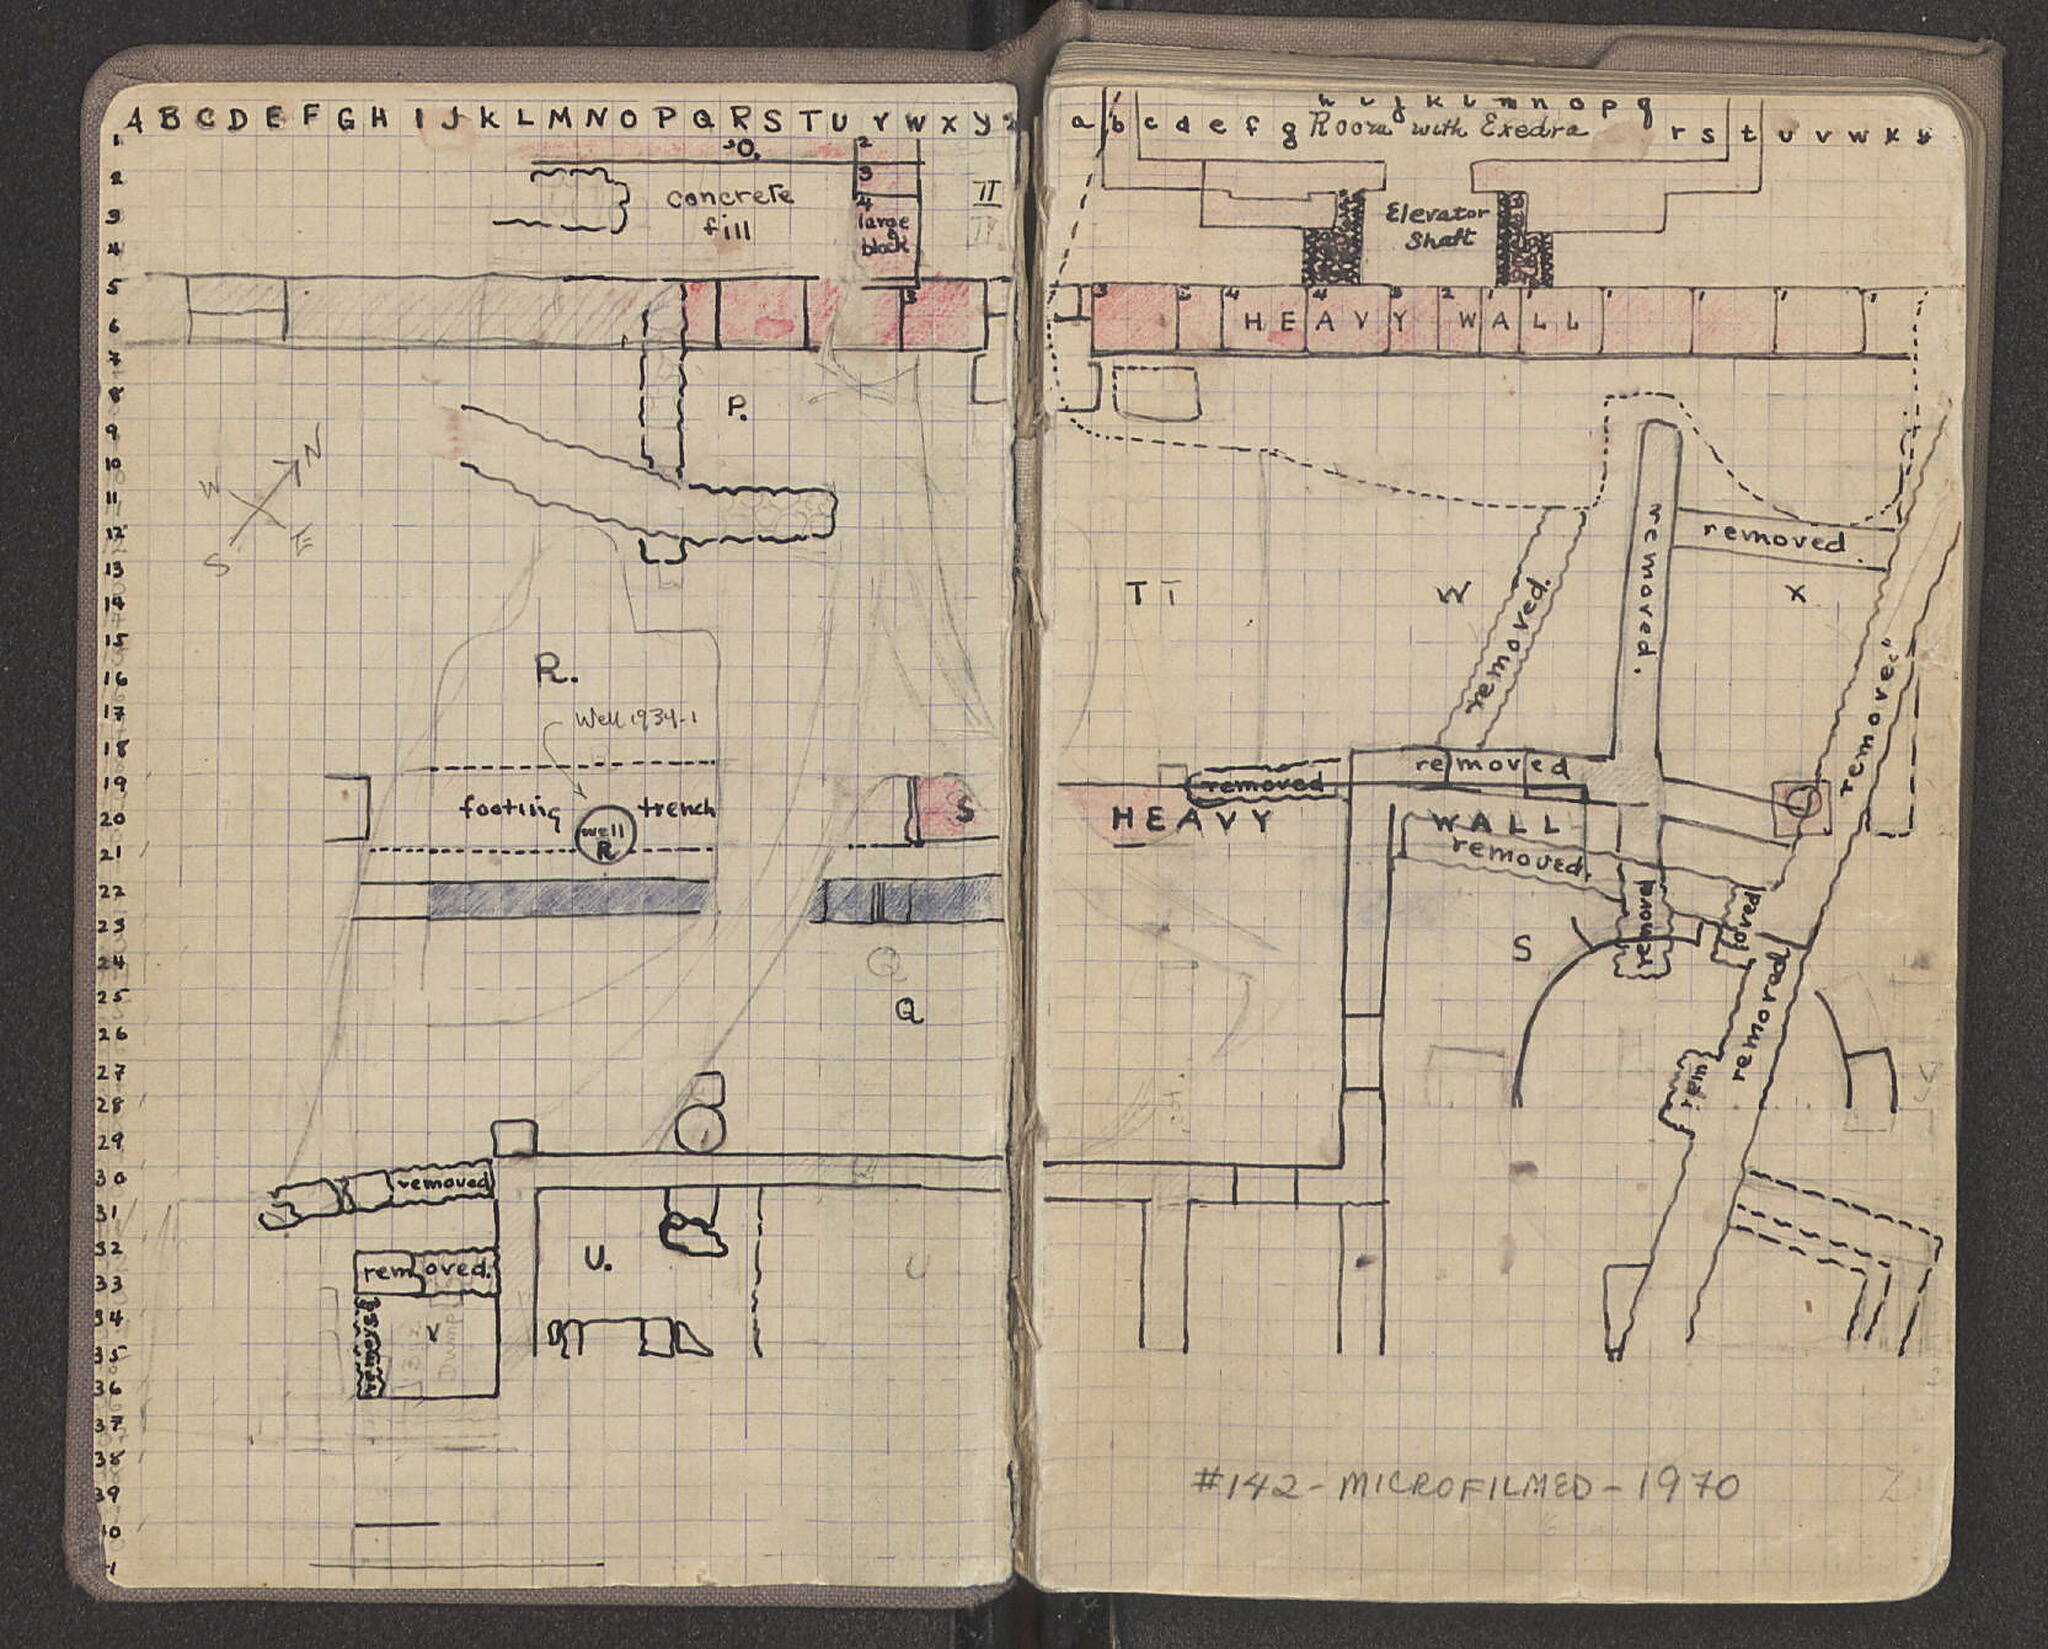 A B C D E F G H I J K L M N O P Q R S T U V W X Y Z
1
2
3
4
5
6
7
8
9
10
11
12
13
14
15
16
17
18
19
20
21
22
23
24
25
26
27
28
29
30
31
32
33
34
35
36
37
38
39
40
O.
2
3
4
large
block
concrete
fill
II
5
P.
W N
S E
R.
Well 1934-1
footing trench
well
R
S
Q
Q
removed
removed.
removed
V
Dump
U.
U
a b c d e f g h i j k l m n o p q r s t u v w x y
Room with Exedra
Elevator
Shaft
3 2 4 4 3 2 1 1 1 1 1 1
HEAVY WALL
removed.
removed
T T
W
removed.
X
removed
removed
removed
HEAVY WALL
removed.
removed
oved
S
removed
rem.
#142 - MICROFILMED - 1970